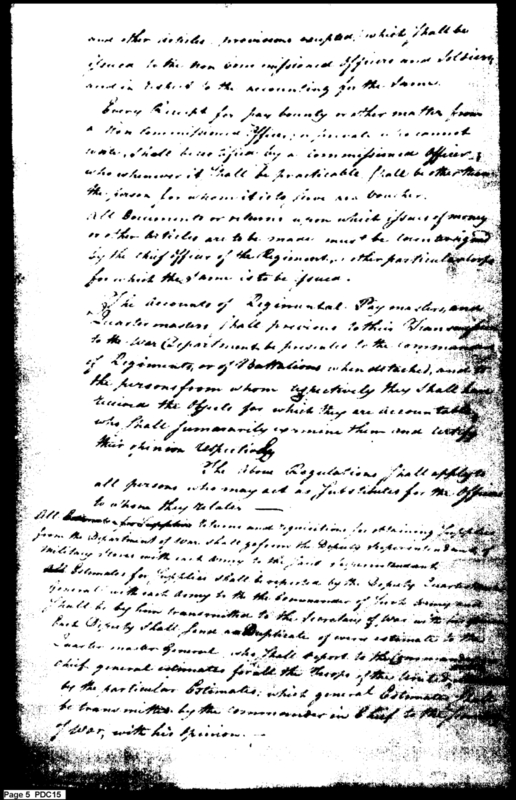 and other articles, provisions excepted, which shall be
issued to the Non commissioned Officers and Soldiers
and in respect to the accounting for the same.
Every Receipt for pay bounty or other matter from
a Non Commissioned Officer, or private who cannot
write, shall be certified by a commissioned officer,
who whenever it shall be practicable shall be other than
the person for whom it is to serve as a Voucher.
All Documents or returns upon which issues of money
or other Articles are to be made must be countersigned
by the chief officer of the Regiment, or other particular corps
for which the same is to be issued.
The accounts of Regimental Paymasters, and
Quartermasters, shall previous to their Transmission
to the War Department be presented to the commanders
of Regiments, or of Battalions when detached, and to
the persons from whom respectively they shall have
received the Objects for which they are accountable
who, shall summarily examine them and certify
their opinion respectively
The above Regulations shall apply to
all persons who may act as substitutes for the Officers
to whom they relate —
All returns and requisitions for obtaining supplies
from the Department of War shall go from the Deputy Superintendants of
military stores with each Army to the said Superintendant
Estimates for supplies shall be reported by the Deputy Quarter
General with each army to the Commander of such Army and
shall be by him transmitted to the Secretary of War with his
Each Deputy shall send a Duplicate of every estimate to the
Quarter master General, who shall report to the Commander
chief general estimates for all the Troops of the United
by the particular Estimates; which general Estimates shall
be transmitted by the commander in Chief to the Secretary
of War, with his opinion. —
Page 5 PDC15